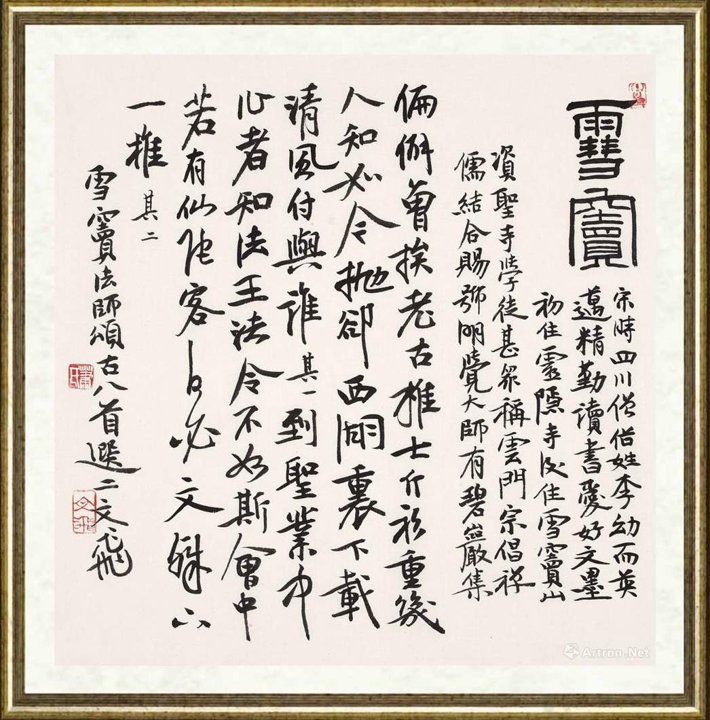 雪竇
宋時四川僧俗姓李幼而英
邁精勤讀書愛好文墨
初住靈隱寺後住雪竇山
資聖寺學徒甚眾稱雲門宗倡禪
儒結合賜號明覺大師有碧巖集
偏僻曾挨老古椎七斤衫重幾
人知如今拋卻西湖裏下載
清風付與誰其一列聖業中
作者知法王法令不如斯會中
若有仙陀客何必文殊下
一推其二
雪竇法師頌古八首選二文飛
Artron.Net